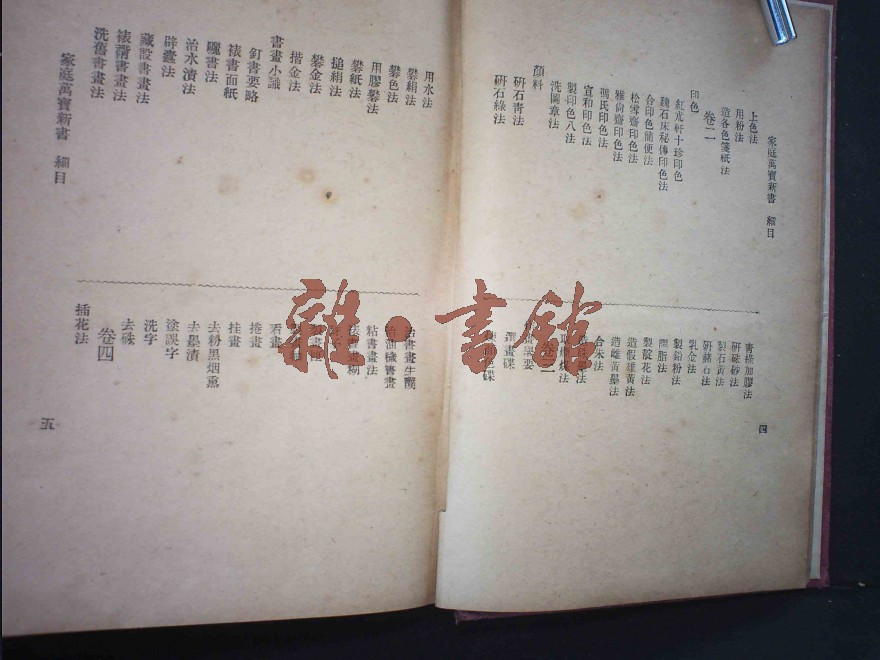 家庭萬寶新書　細目
上色法
用粉法
造各色箋紙法
卷二
印色
紅朮軒十珍印色
魏石床秘傳印色法
合印色簡便法
松雪齋印色法
雅尙齋印色法
馮氏印色法
宣和印色法
製印色八法
洗圖章法
顏料
硏石靑法
硏石綠法
靑綠加膠法
硏硃砂法
製石黃法
硏赭石法
乳金法
製鉛粉法
臙脂法
製靛花法
造假雄黃法
造雌黃墨法
合朱法
卷三
四
用水法
礬絹法
礬色法
用膠礬法
礬紙法
搥絹法
礬金法
揩金法
書畫小識
釘書要略
裱書面紙
曬書法
治水漬法
辟蠹法
藏設書畫法
裱褙書畫法
洗舊書畫法
家庭萬寶新書　細目
治書畫生霉
治油穢書畫
粘書畫法
看畫
捲畫
挂畫
去粉黑烟熏
去墨漬
塗誤字
洗字
去硃
卷四
插花法
五
雜·書館